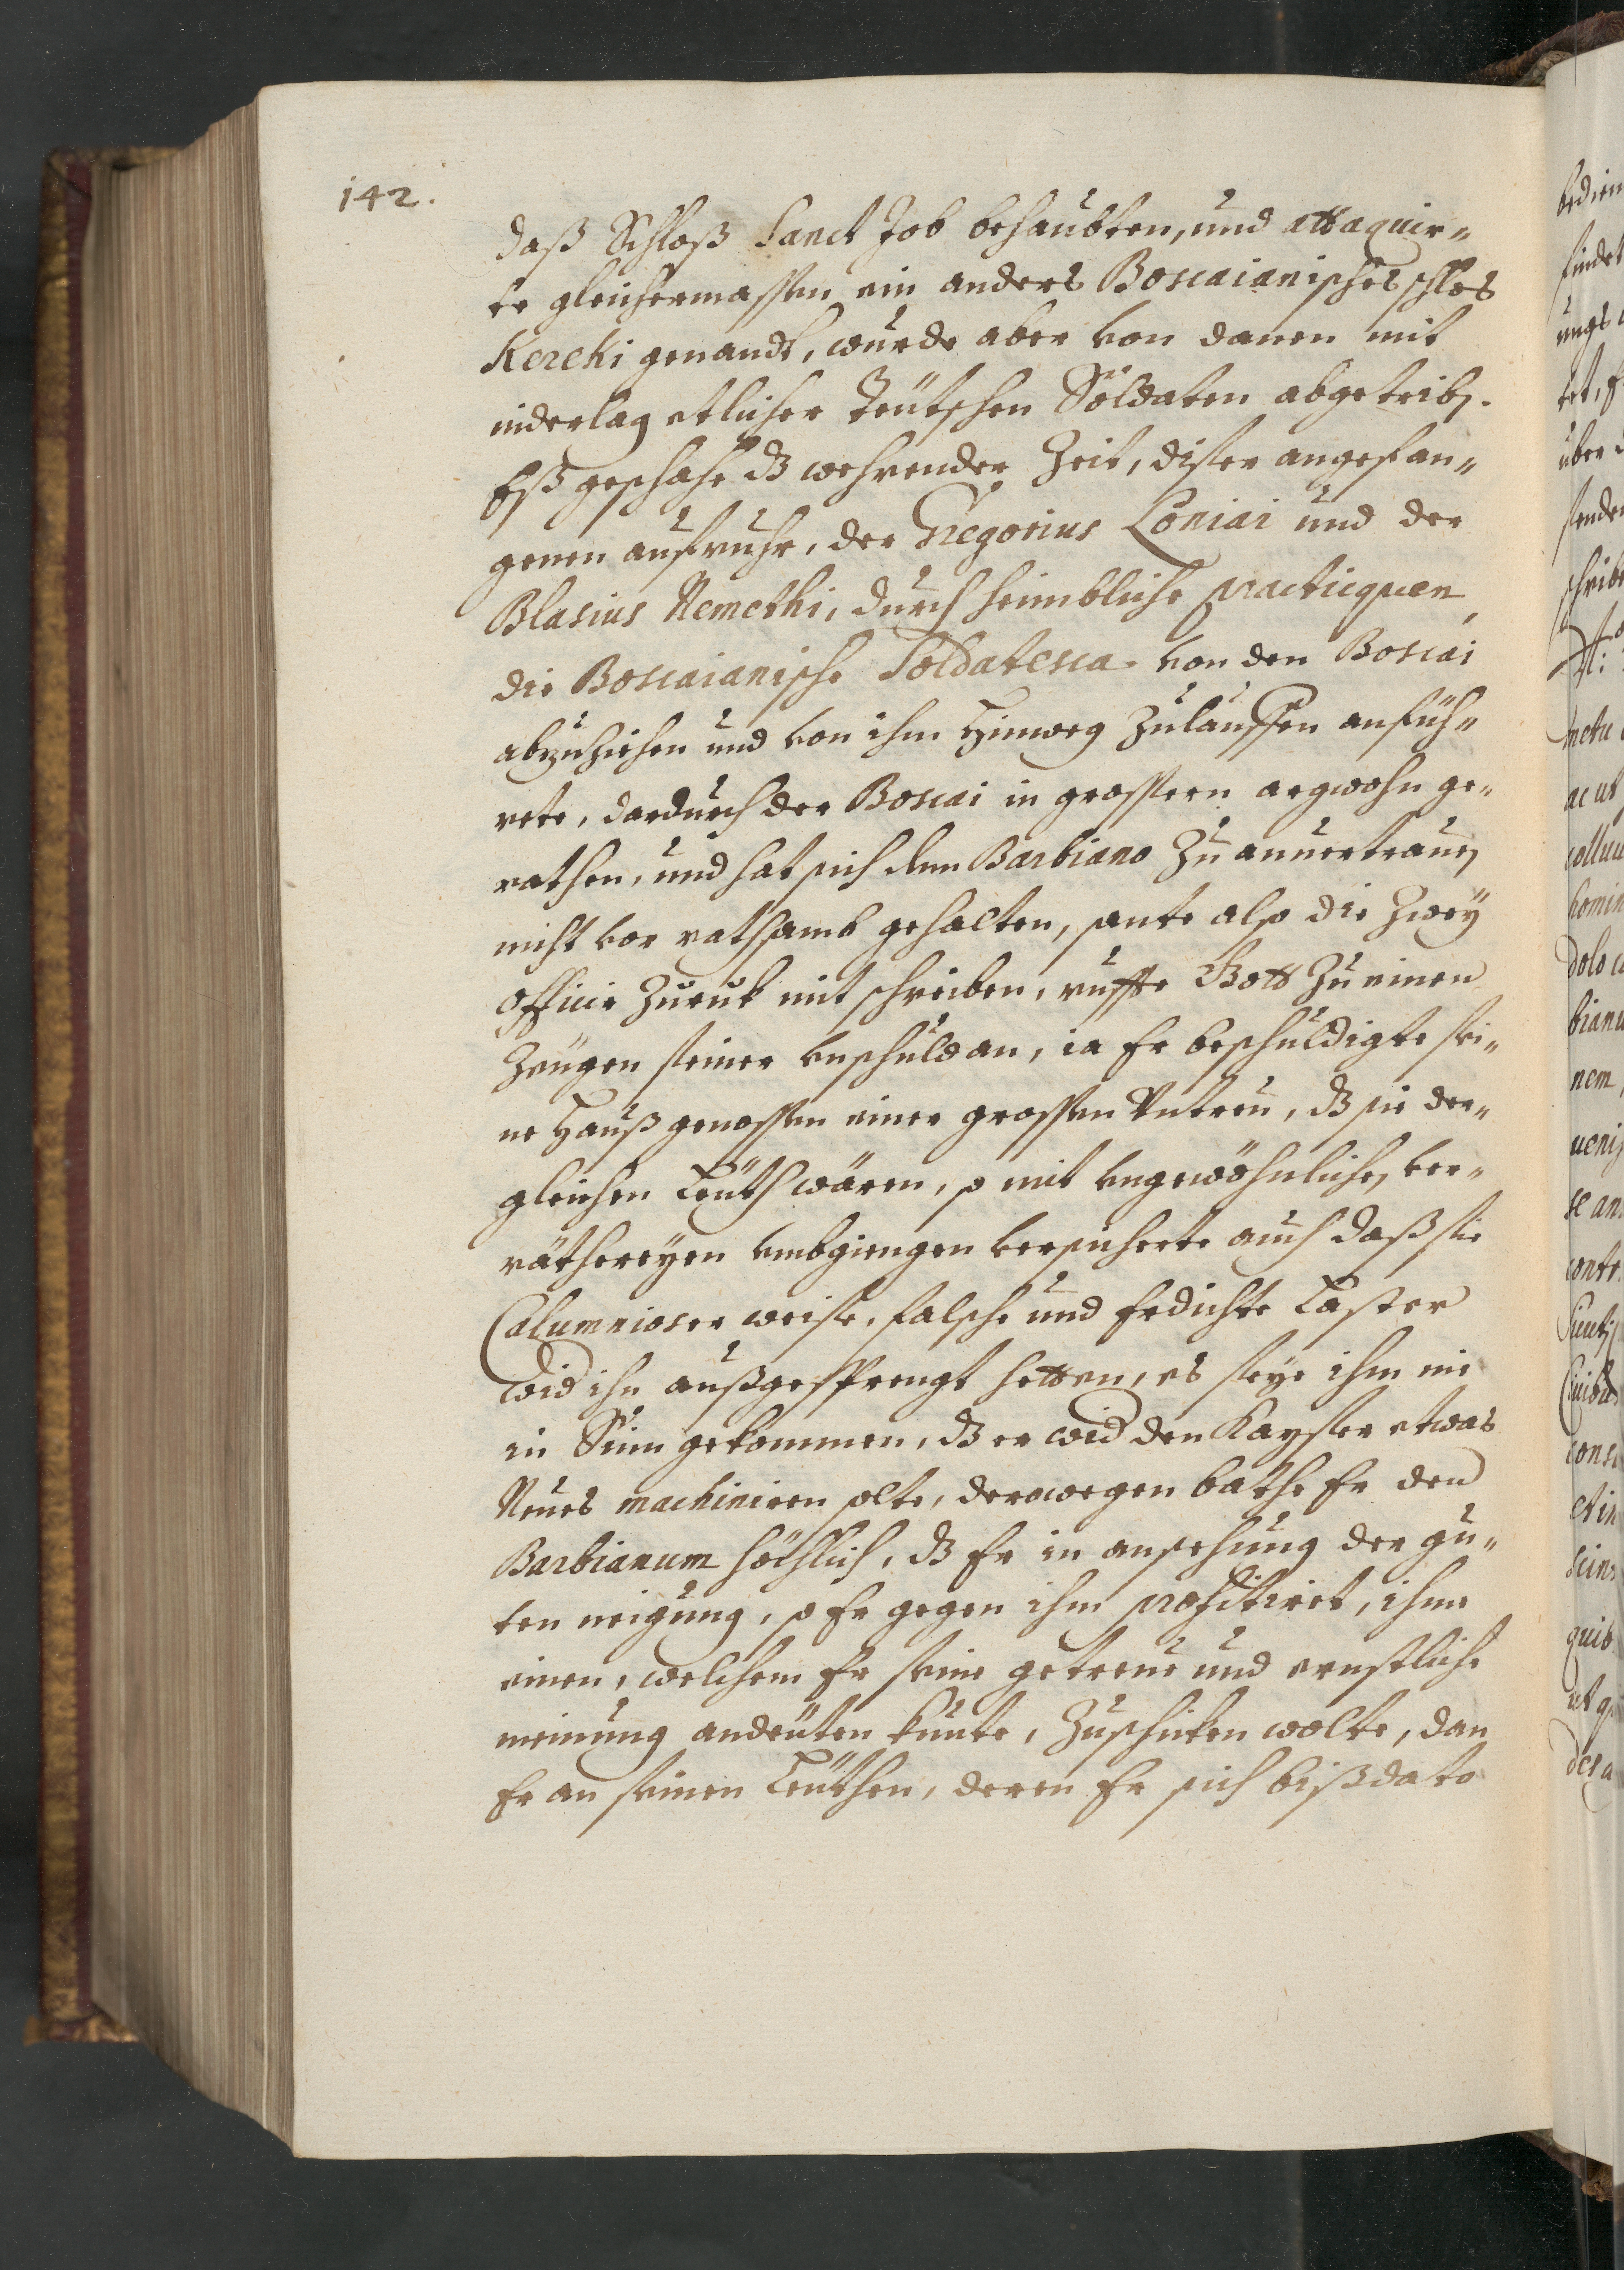 142.
daß Schloß Sanct Job behaubten, und attaquir„
te gleichermassen ein anders Boscaianisches schlos
Kereki genandt, wurde aber von danen mit
niderlag etlicher Teütschen Söldaten abgetrib.
Eß geschahe dz wehrender Zeit, diser angefan„
genen aufruhr, der Gregorius Loniai und der
Blasius Nemethi, durch heimbliche practicquen
die Boscaianische Soldatesca von den Boscai
abzuziehen und von ihm hinweg zulauffen anfüh„
rete, dardurch der Boscai in grossern argwohn ge„
rathen, und hat sich dem Barbiano zu anuertrauen
nicht vor rathsamb gehalten, sante also die zwey
officir zuruk mit schreiben, ruffte Gott zu einen
zeugen seiner vnschuld an, ia Er beschuldigte sei„
ne haußgenossen einer grossen Vntreu, dz sie der„
gleichen Leüth wären, so mit vngewöhnlichen ver„
räthereyen vmbgiengen versicherte auch daß sie
Calumnioser weise, falsche und Erdichte Laster
wid ihn außgesprengt hetten, es seye ihm nie
in Sinn gekommen, dz er wid den Kayser etwas
Neues machiniren solte, derowegen bathe Er den
Barbianum höchlich, dz Er in ansehung der gu„
ten neigung, so Er gegen ihm profitiret, ihme
einen, welchem Er seine getreue und ernstliche
meinung andeüten kunte, zuschicken wolte, dan
Er an seinen Leüthen, deren Er sich bißdato